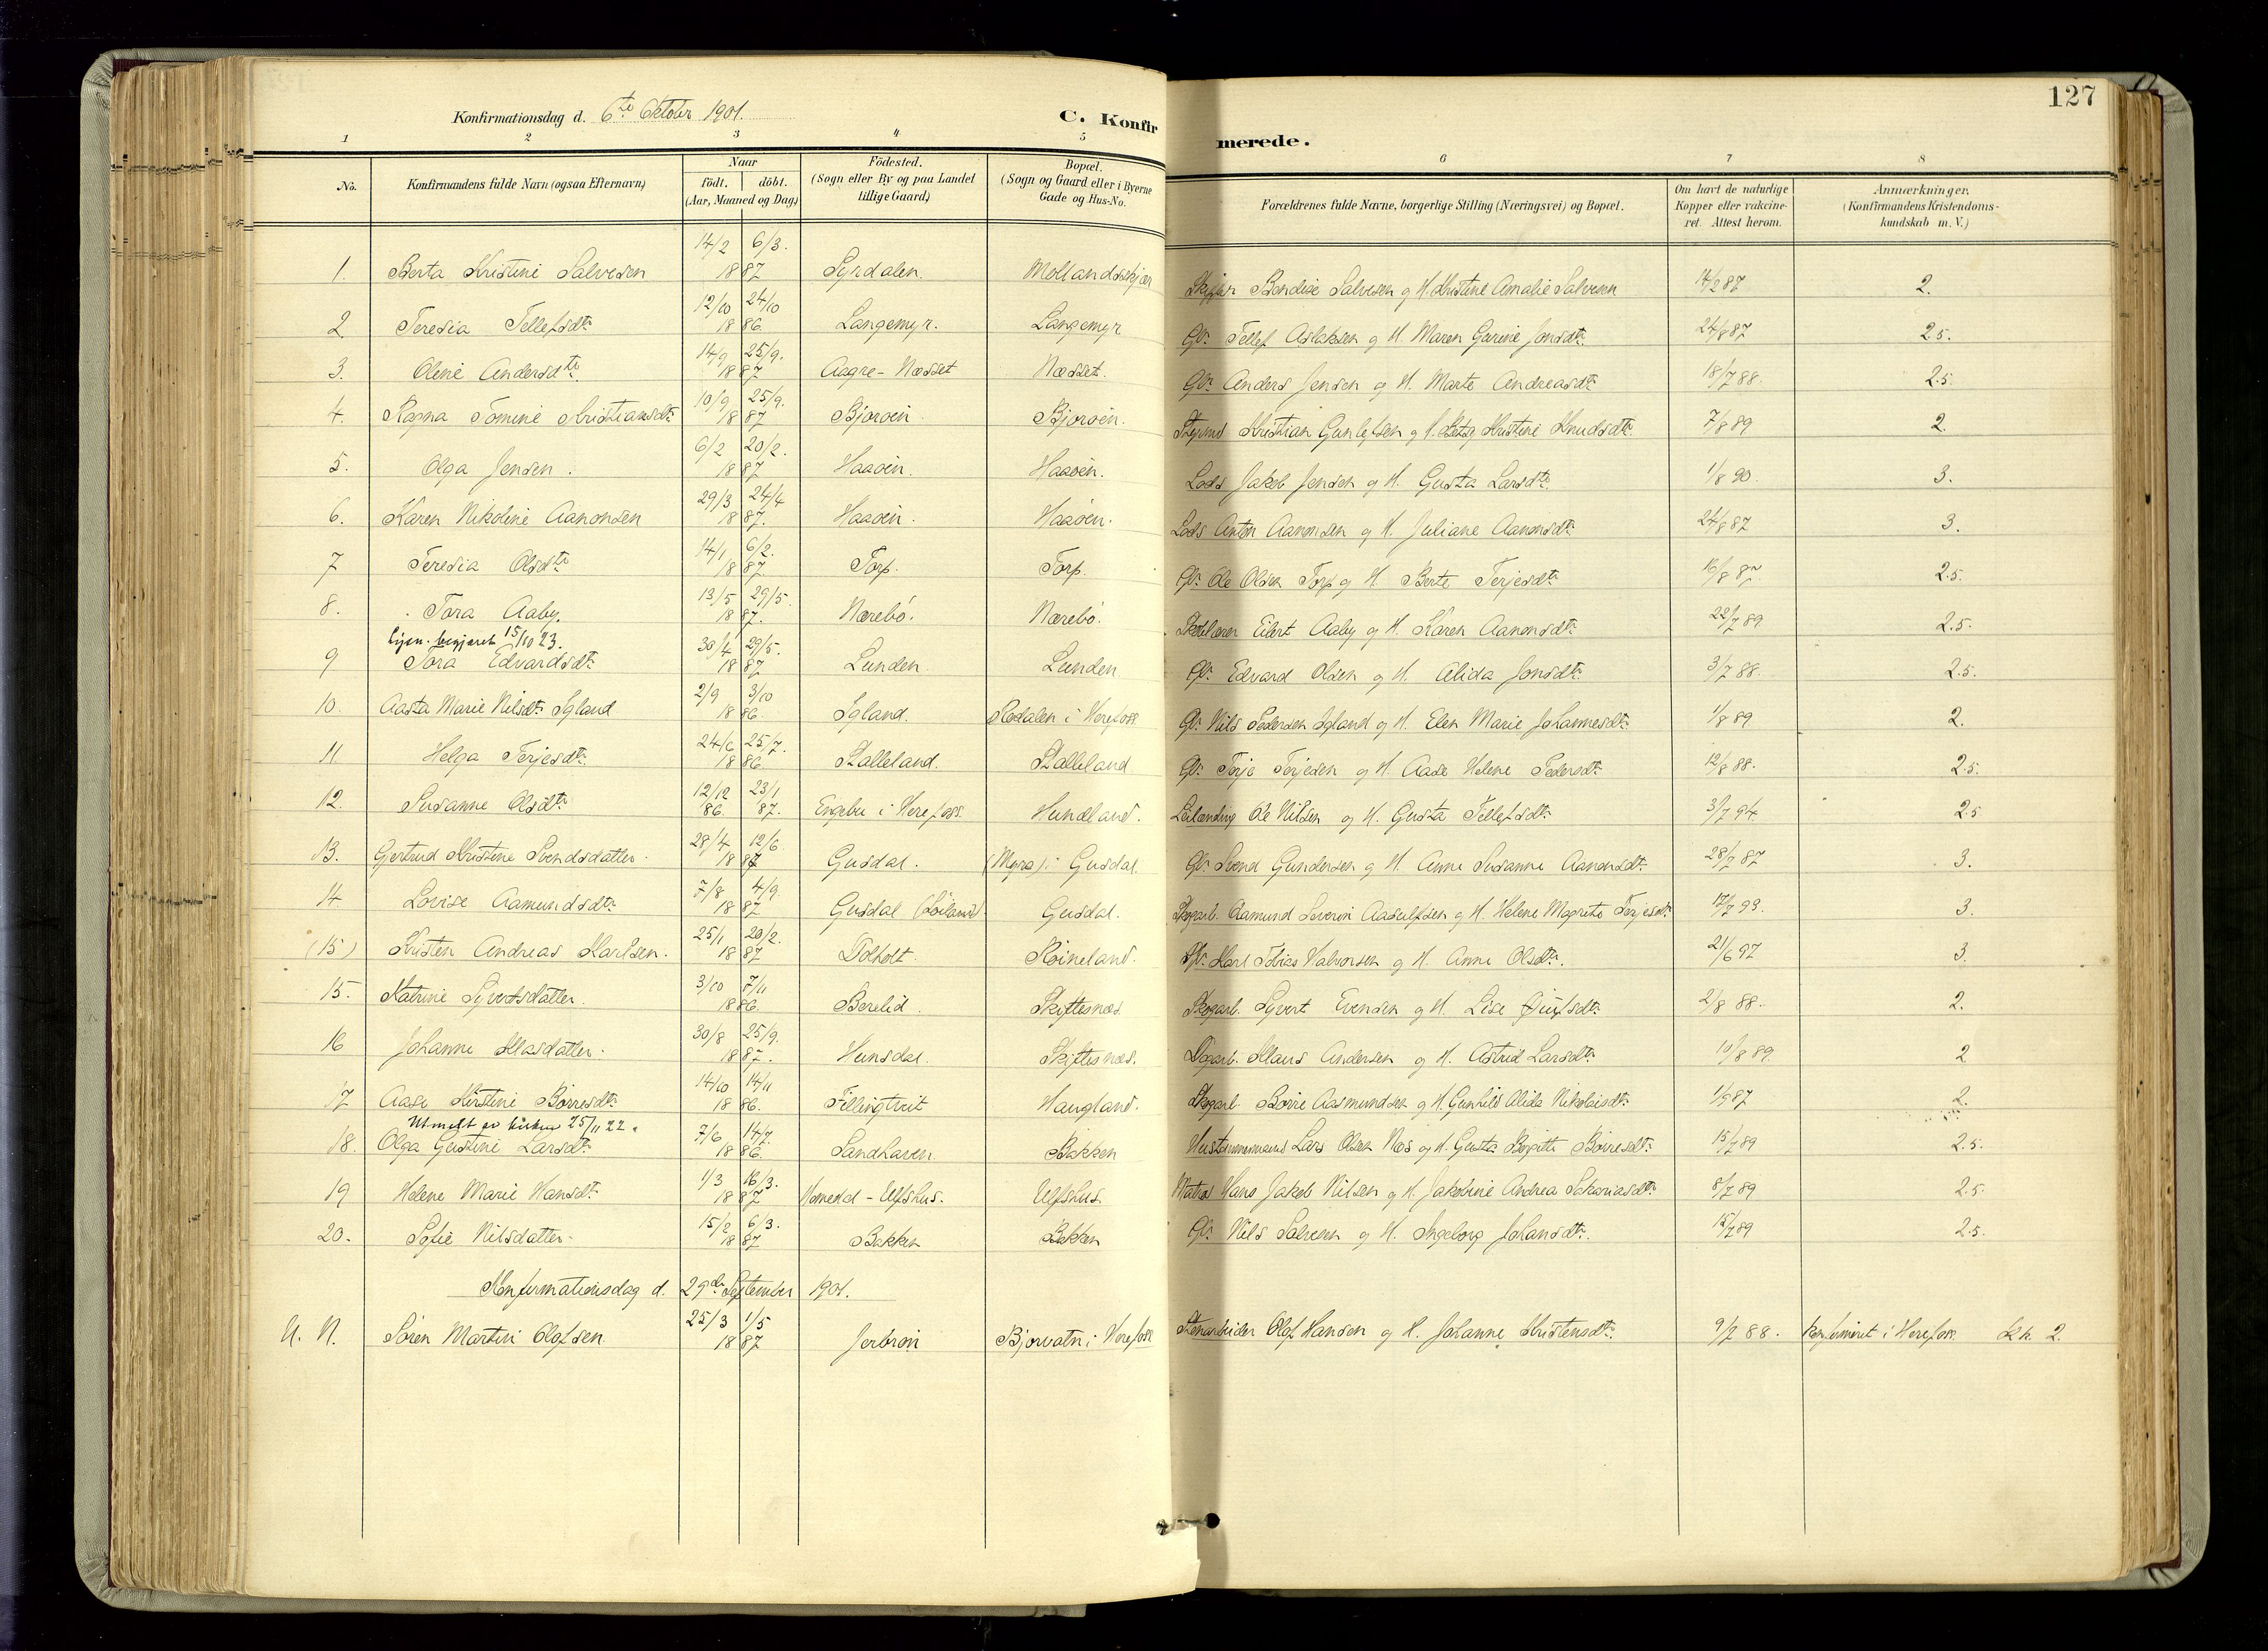 127
Konfirmationsdag d. 6te Oktober 1901.
C. Konfirmerede.
1 2 3 4 5 6 7 8
No. Konfirmandens fulde Navn (ogsaa Efternavn) Naar født. døbt. (Aar, Maaned og Dag) Födested. (Sogn eller By og paa Landet tillige Gaard) Bopæl. (Sogn og Gaard eller i Byerne Gade og Hus-No. Forældrenes fulde Navne, borgerlige Stilling (Næringsvei) og Bopæl. Om havt de naturlige Kopper eller vakcineret. Attest herom. Anmærkninger. (Konfirmandens Kristendomskundskab m. V.)
1. Berta Kristine Salvesen 14/2 6/3. 1887 Syrdalen. Mollandskjær Skipper Bendix Salvesen og H. Kristine Amalie Salvesen 14/2 87 2.
2 Teresia Tellefsdtr 12/10 24/10 1886. Langemyr. Langemyr Gbr. Tellef Aslaksen og H. Maren Gurine Jonsdtr. 24/8 87 2.5.
3. Oline Andersdtr. 14/9 25/9. 1887 Aagre-Næsset Næsset. Gbr. Anders Jensen og H. Marte Andreasdtr. 18/7 88. 2.5.
4. Ragna Tomine Kristiansdtr. 10/9 25/9. 1887 Bjorøen Bjorøen. Kristian Gunlefsen og H. Kristine Knudsdtr. 7/8 89 2.
5. Olga Jensen. 6/2 20/2. 1887 Haaøen. Haaøen. Lods Jakob Jensen og H. Gusta Larsdtr. 1/8 90. 3.
6. Karen Nikoline Aanonsen 29/3 24/4 1887. Haaøen. Haaøen. Lods Anton Aanonsen og H. Juliane Aanonsdtr. 24/8 87 3.
7 Teresia Olsdtr. 14/1 6/2. 1887 Torp. Torp. Gbr. Ole Olsen Torp og H. Berte Terjesdtr. 16/8 87 2.5.
8. Tora Aaby. 13/5 29/5. 1887. Nærebö. Nærebö. Skolelærer Eilert Aaby og H. Karen Aanonsdtr. 22/7 89 2.5.
15/10 23.
9 Tora Edvardsdtr. 30/4 29/5. 1887 Lunden. Lunden Gbr. Edvard Olsen og H. Alida Jonsdtr. 3/7 88. 2.5.
10. Aasta Marie Nilsdtr. Igland 2/9 3/10 1886. Igland. Rødalen i Herefoss Gbr. Nils Pedersen Igland og H. Elen Marie Johannesdtr. 1/8 89. 2.
11 Helga Terjesdtr. 24/6 25/7. 1886. Stalleland. Stalleland Gbr. Terje Terjesen og H. Aase Helene Pedersdtr. 12/8 88. 2.5.
12. Susanne Olsdtr. 12/12 86. 23/1 87. Engebu i Herefoss. Hundland. Leilænding Ole Nilsen og H. Gusta Tellefsdtr. 3/7 94. 2.5
13. Gertrud Kristine Svendsdatter. 28/4 12/6. 1887 Gusdal. (Myra) i Gusdal. Gbr. Svend Gundersen og H. Anne Susanne Aanonsdtr. 28/7 87 3.
14 Lovise Aamundsdtr. 7/8 4/9. 1887 Gusdal (Löiland). Gusdal. Skogarb. Aamund Severin Aasulfsen og H. Helene Magrete Terjesdtr. 17/7 93. 3.
(15) Kristen Andreas Karlsen. 25/1 20/2. 1887 Dolholt. Röineland. Gbr. Karl Tobias Halvorsen og H. Anne Olsdtr. 21/6 97 3.
15. Katrine Syvertsdatter. 3/10 7/11 1886. Berelid. Skiftesnæs. Skogarb. Syvert Evensen og H. Lise 2/8 88. 2.
16 Johanne Klasdatter. 30/8 25/9. 1887. Hunsdal. Skiftesnæs. Dagarb. Klaus Andersen og H. Astrid Larsdtr. 10/8 89. 2
17 Aase Kirstine Börresdtr. 14/10 14/11 1886. Fillingtveit Haugland. Skogarb. Börre Aasmundsen og H. Gunhild Alida Nikolaisdtr. 1/9 87 2.
Utmeldt av kirken 25/11 22.
18. Olga Gustine Larsdtr. 7/6 14/7. 1886. Sandhaven. Bakken Hustømmermand Lars Olsen Næs og H. Gusta Birgitte Börresdtr. 15/7 89 2.5.
19 Helene Marie Hansdtr. 1/3 16/3. 1887 Homedal - Ulfshus. Ulfshus. Matros Hans Jakob Nilsen og H. Jakobine Andrea Sakariasdtr. 8/7 89 2.5.
20. Sofie Nilsdatter. 15/2 6/3. 1887 Bakken Bakken Gbr. Nils Salvesen og H. Ingeborg Johansdtr. 15/7 89 2.5.
Konfirmationsdag d. 29de September 1901.
U. N. Sören Martin Olofsen 25/3 1/5 1887 Bjorvatn i Herefoss Stenarbeider Olof Hansen og H. Johanne Kristensdtr. 9/7 88. konfirmeret i Herefoss. Kk. 2.